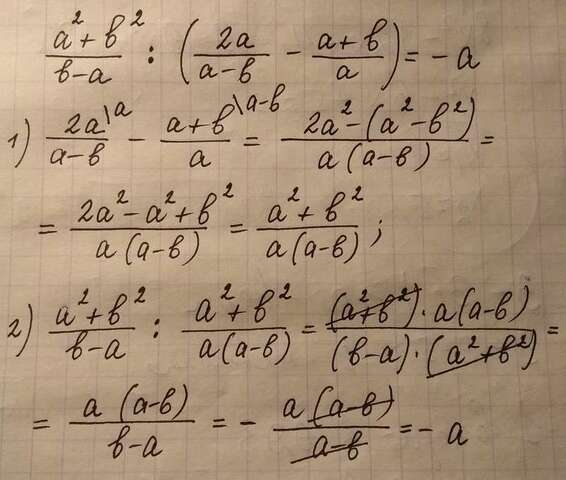 (a² + b²)/(b - a) : (2a/(a - b) - (a + b)/a) = - a
1) 2a\a/(a - b) - (a + b)\a-b/a = (2a² - (a² - b²))/(a (a - b)) =
= (2a² - a² + b²)/(a (a - b)) = (a² + b²)/(a (a - b)) ;
2) (a² + b²)/(b - a) : (a² + b²)/(a (a - b)) = ((a² + b²) · a (a - b))/((b - a) · (a² + b²)) =
= (a (a - b))/(b - a) = - (a (a - b))/(a - b) = - a